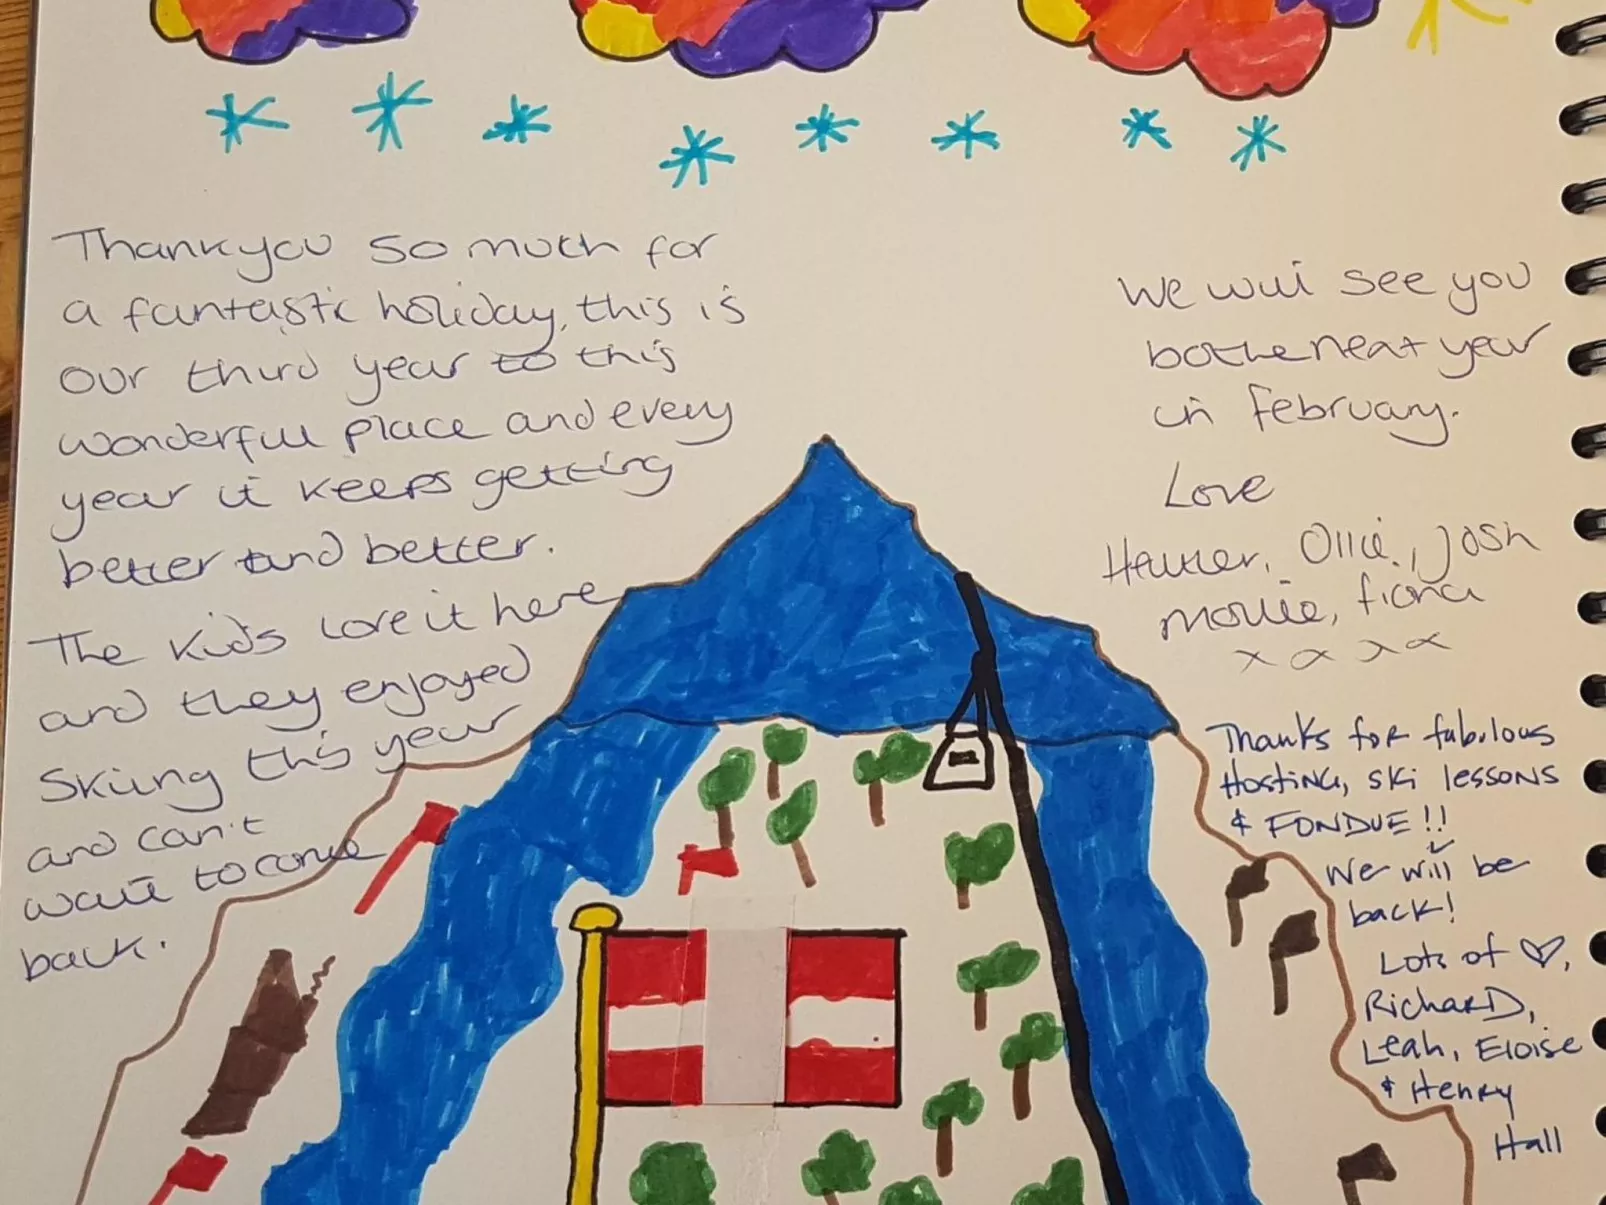 Thankyou so much for
a fantastic holiday, this is
our third year to this
wonderful place and every
year it keeps getting
better and better.
The kids love it here
and they enjoyed
Skiing this year
and can't
wait to come
back.
We will see you
bothe next year
in February.
Love
Heather, Ollie, Josh
Mollie, fiona
x x x x
Thanks for fabulous
Hosting, ski lessons
& FONDUE!!
We will be
back!
Lots of ♡,
Richard,
Leah, Eloise
& Henry
Hall